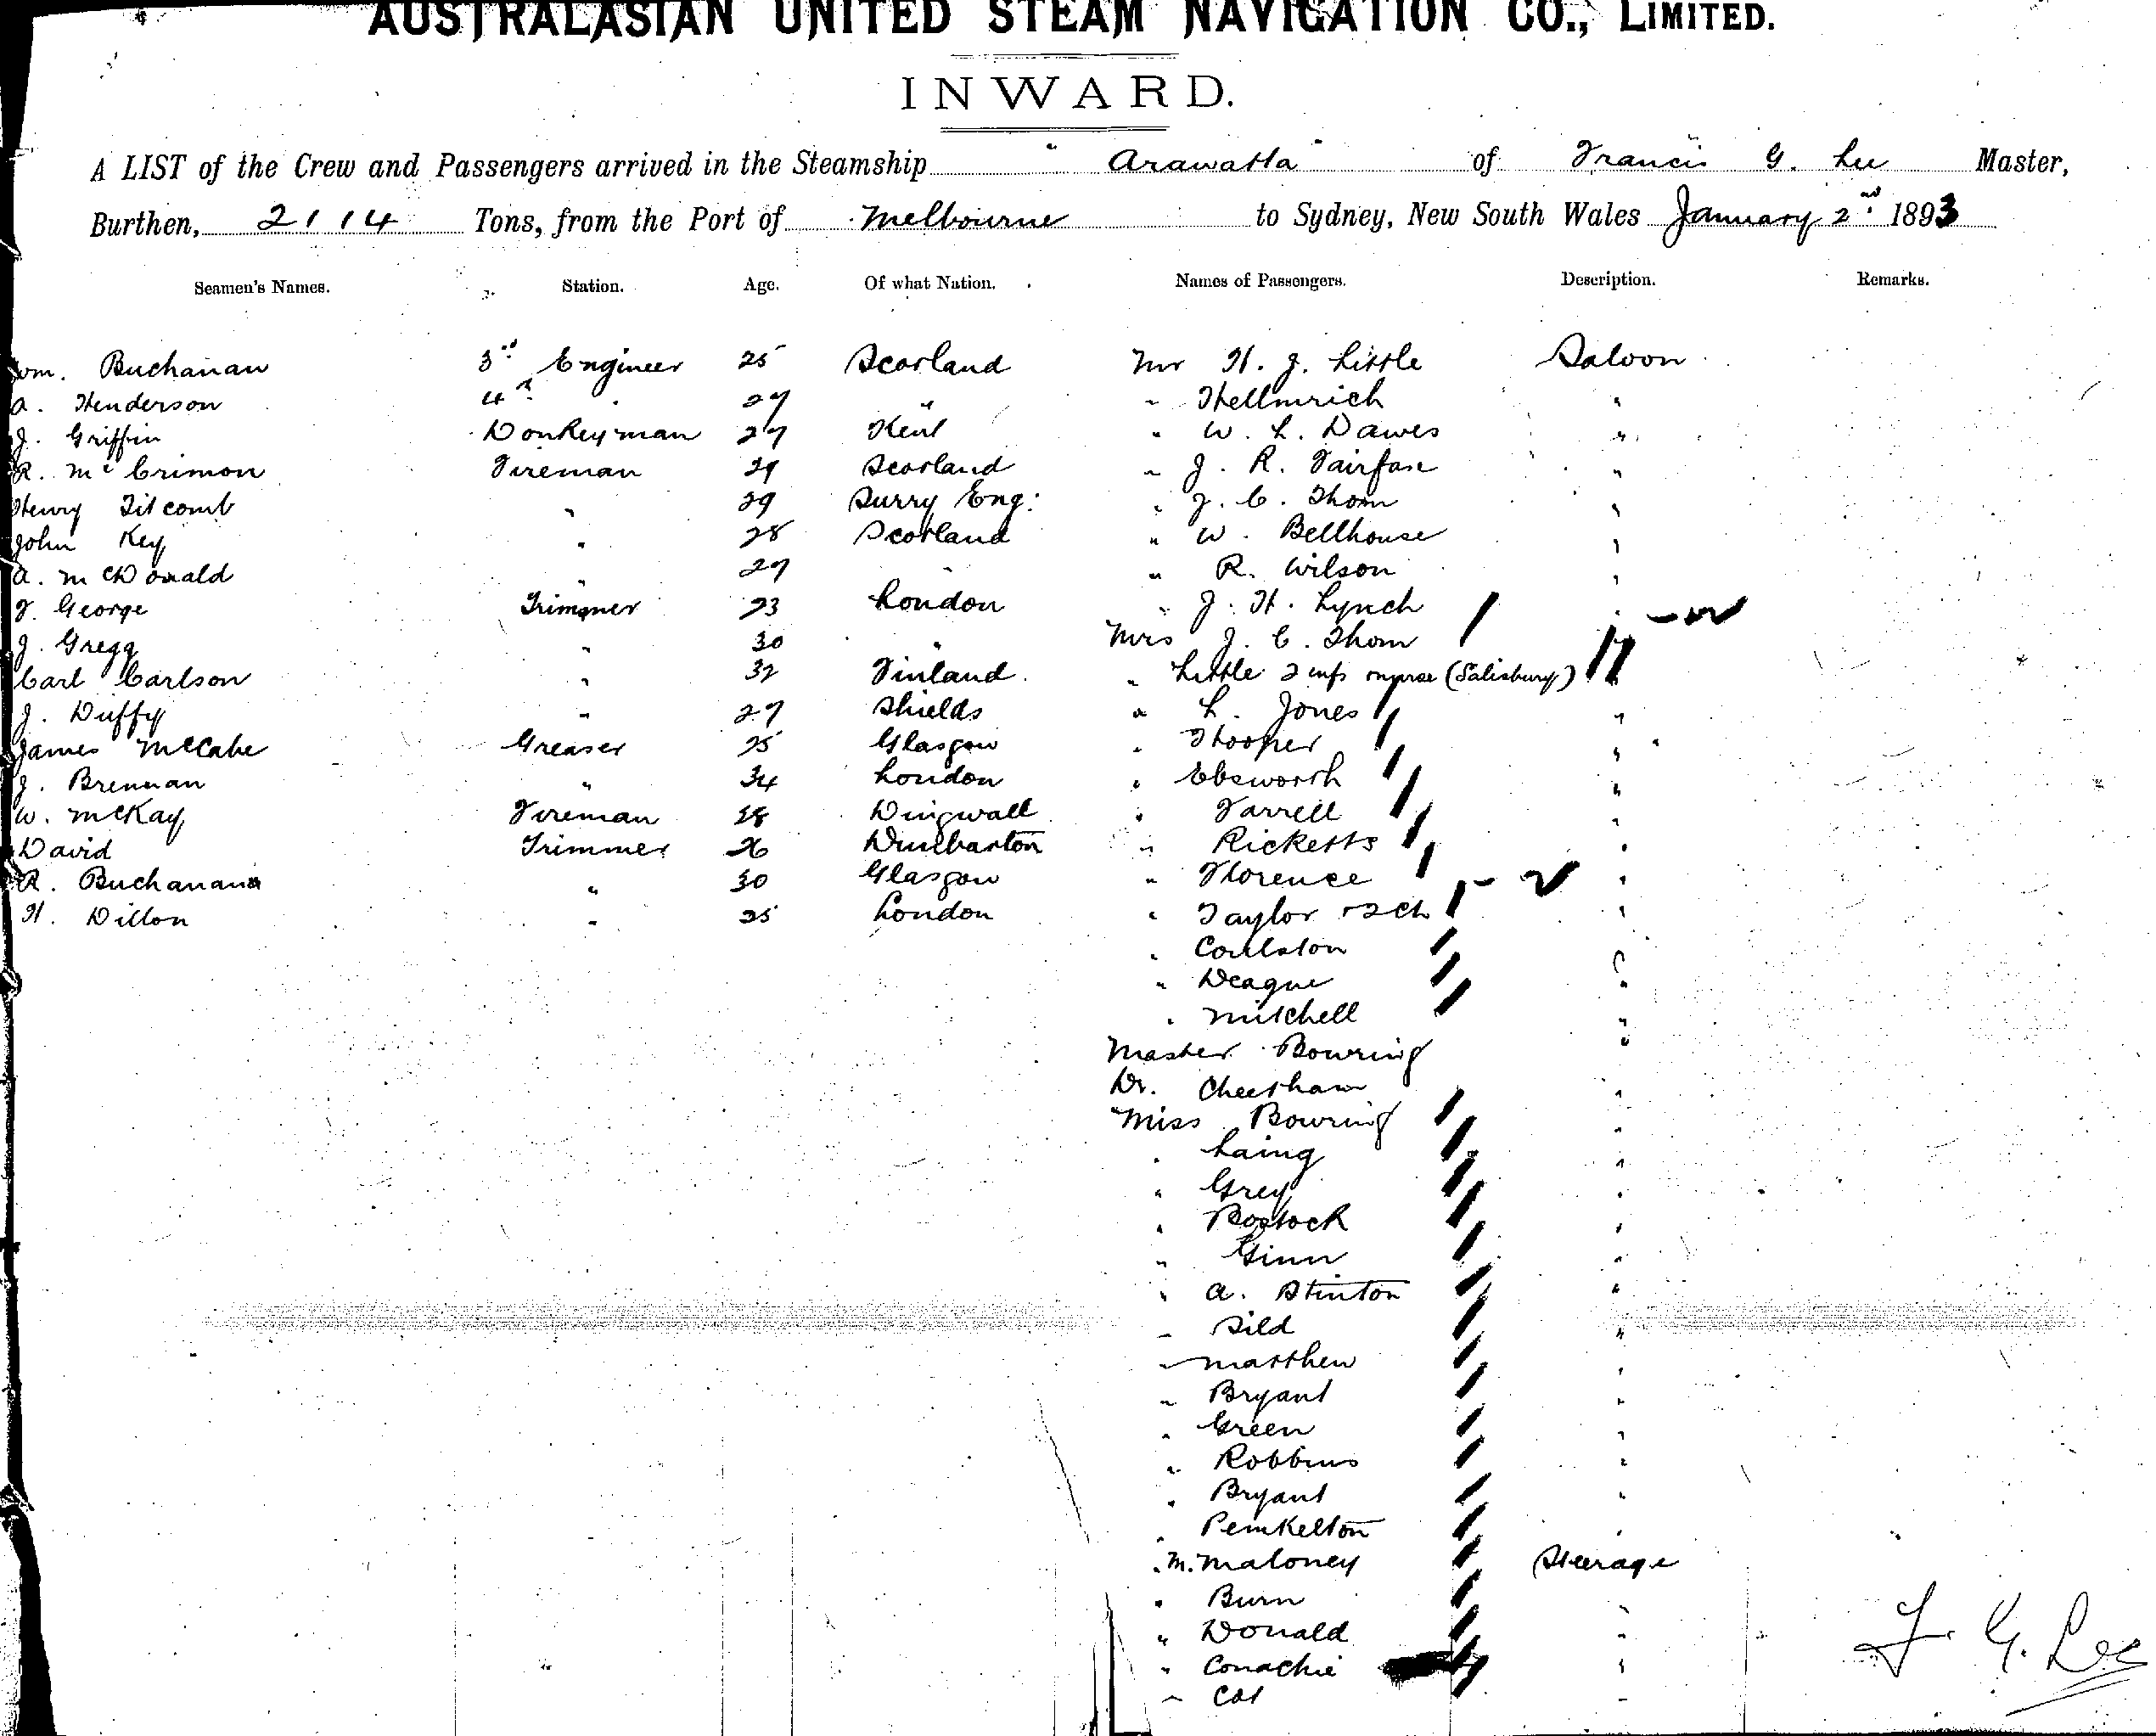 AUSTRALASIAN UNITED STEAM NAVIGATION CO., LIMITED.
INWARD.
A LIST of the Crew and Passengers arrived in the Steamship "Arawatta" of Francis G. Lee Master,
Burthen, 2114 Tons, from the Port of Melbourne to Sydney, New South Wales January 2nd 1893
Seamen's Names. Station. Age. Of what Nation. Names of Passengers. Description. Remarks.
Wm. Buchanan 3rd Engineer 25 Scotland Mr H. J. Little Saloon
A. Henderson 4th " 27 " " Hellmrich "
J. Griffin Donkeyman 27 Kent " W. L. Dawes "
R. McCrimon Fireman 29 Scotland " J. R. Fairfax "
Henry Titcomb " 29 Surry Eng: " J. C. Thom "
John Key " 28 Scotland " W. Bellhouse "
A. McDonald " 27 " " R. Wilson "
J. George Trimmer 23 London " J. H. Lynch "
J. Gregg " 30 " Mrs J. C. Thom
Carl Carlson " 32 Finland " Little 2 infs nurse (Salisbury)
J. Duffy " 27 Shields " L. Jones "
James McCabe Greaser 25 Glasgow " Hooper "
J. Brennan " 34 London " Ebsworth "
W. McKay Fireman 28 Dingwall " Farrell "
David Trimmer 26 Dumbarton " Ricketts "
R. Buchanan " 30 Glasgow " Florence "
H. Dillon " 25 London " Taylor + 2 ch "
" Coulston "
" Deague "
" Mitchell "
Master Bowring "
Dr. Cheetham "
Miss Bowring "
" Laing "
" Grey "
" Bostock "
" Ginn "
" A. Stinton "
" Sild "
" Matthew "
" Bryant "
" Green "
" Robbins "
" Bryant "
" Pemkelton "
" M. Maloney Steerage
" Burn "
" Donald "
" Conachie "
" Cox "
F. G. Lee